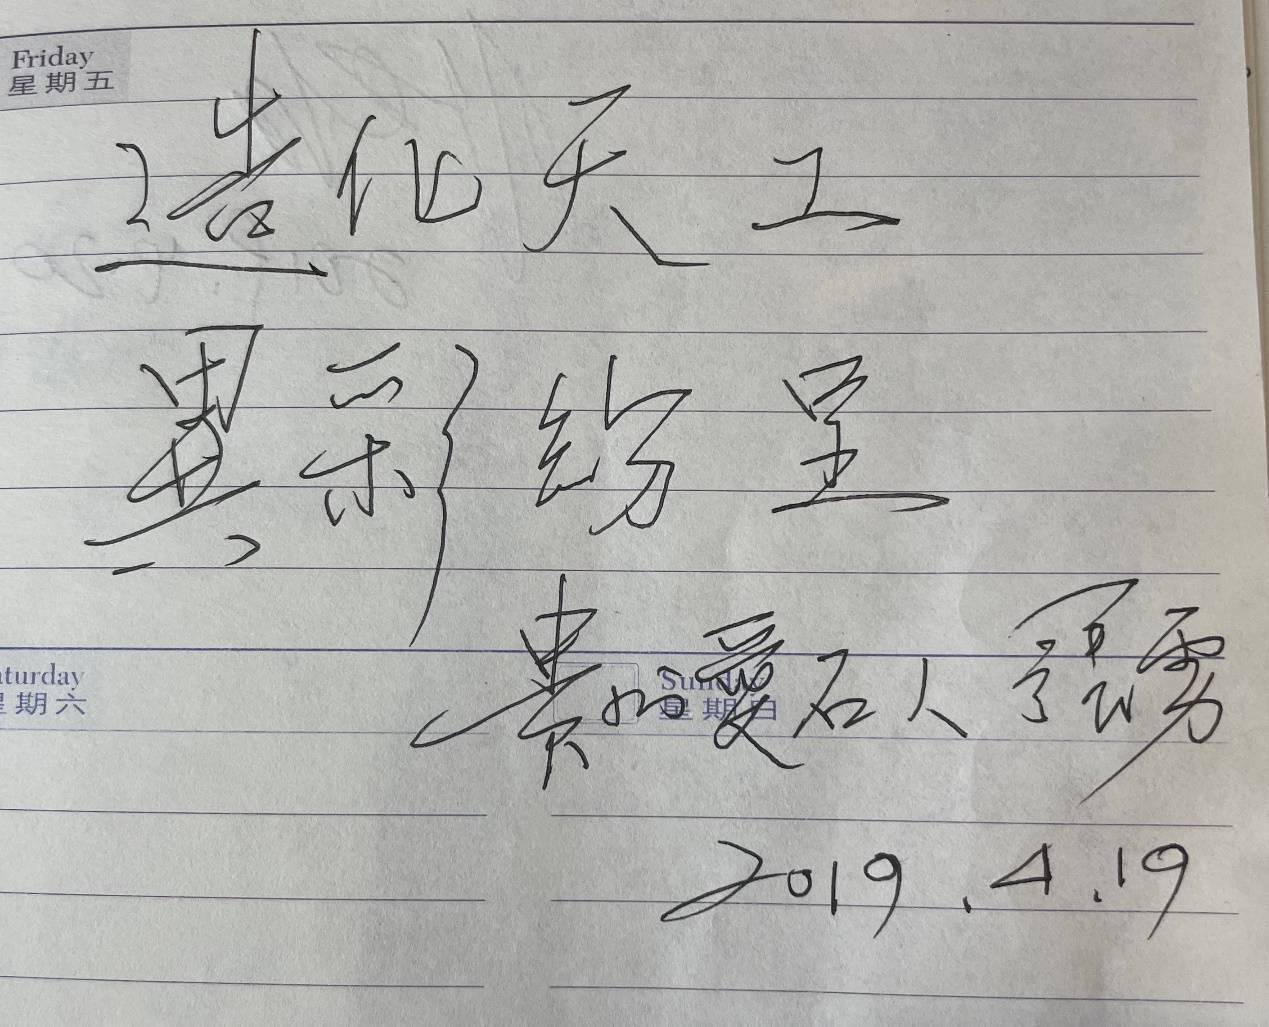 Friday
星期五
造化天工
異彩紛呈
貴州愛石人
aturday
星期六
Sunday
星期日
2019.4.19